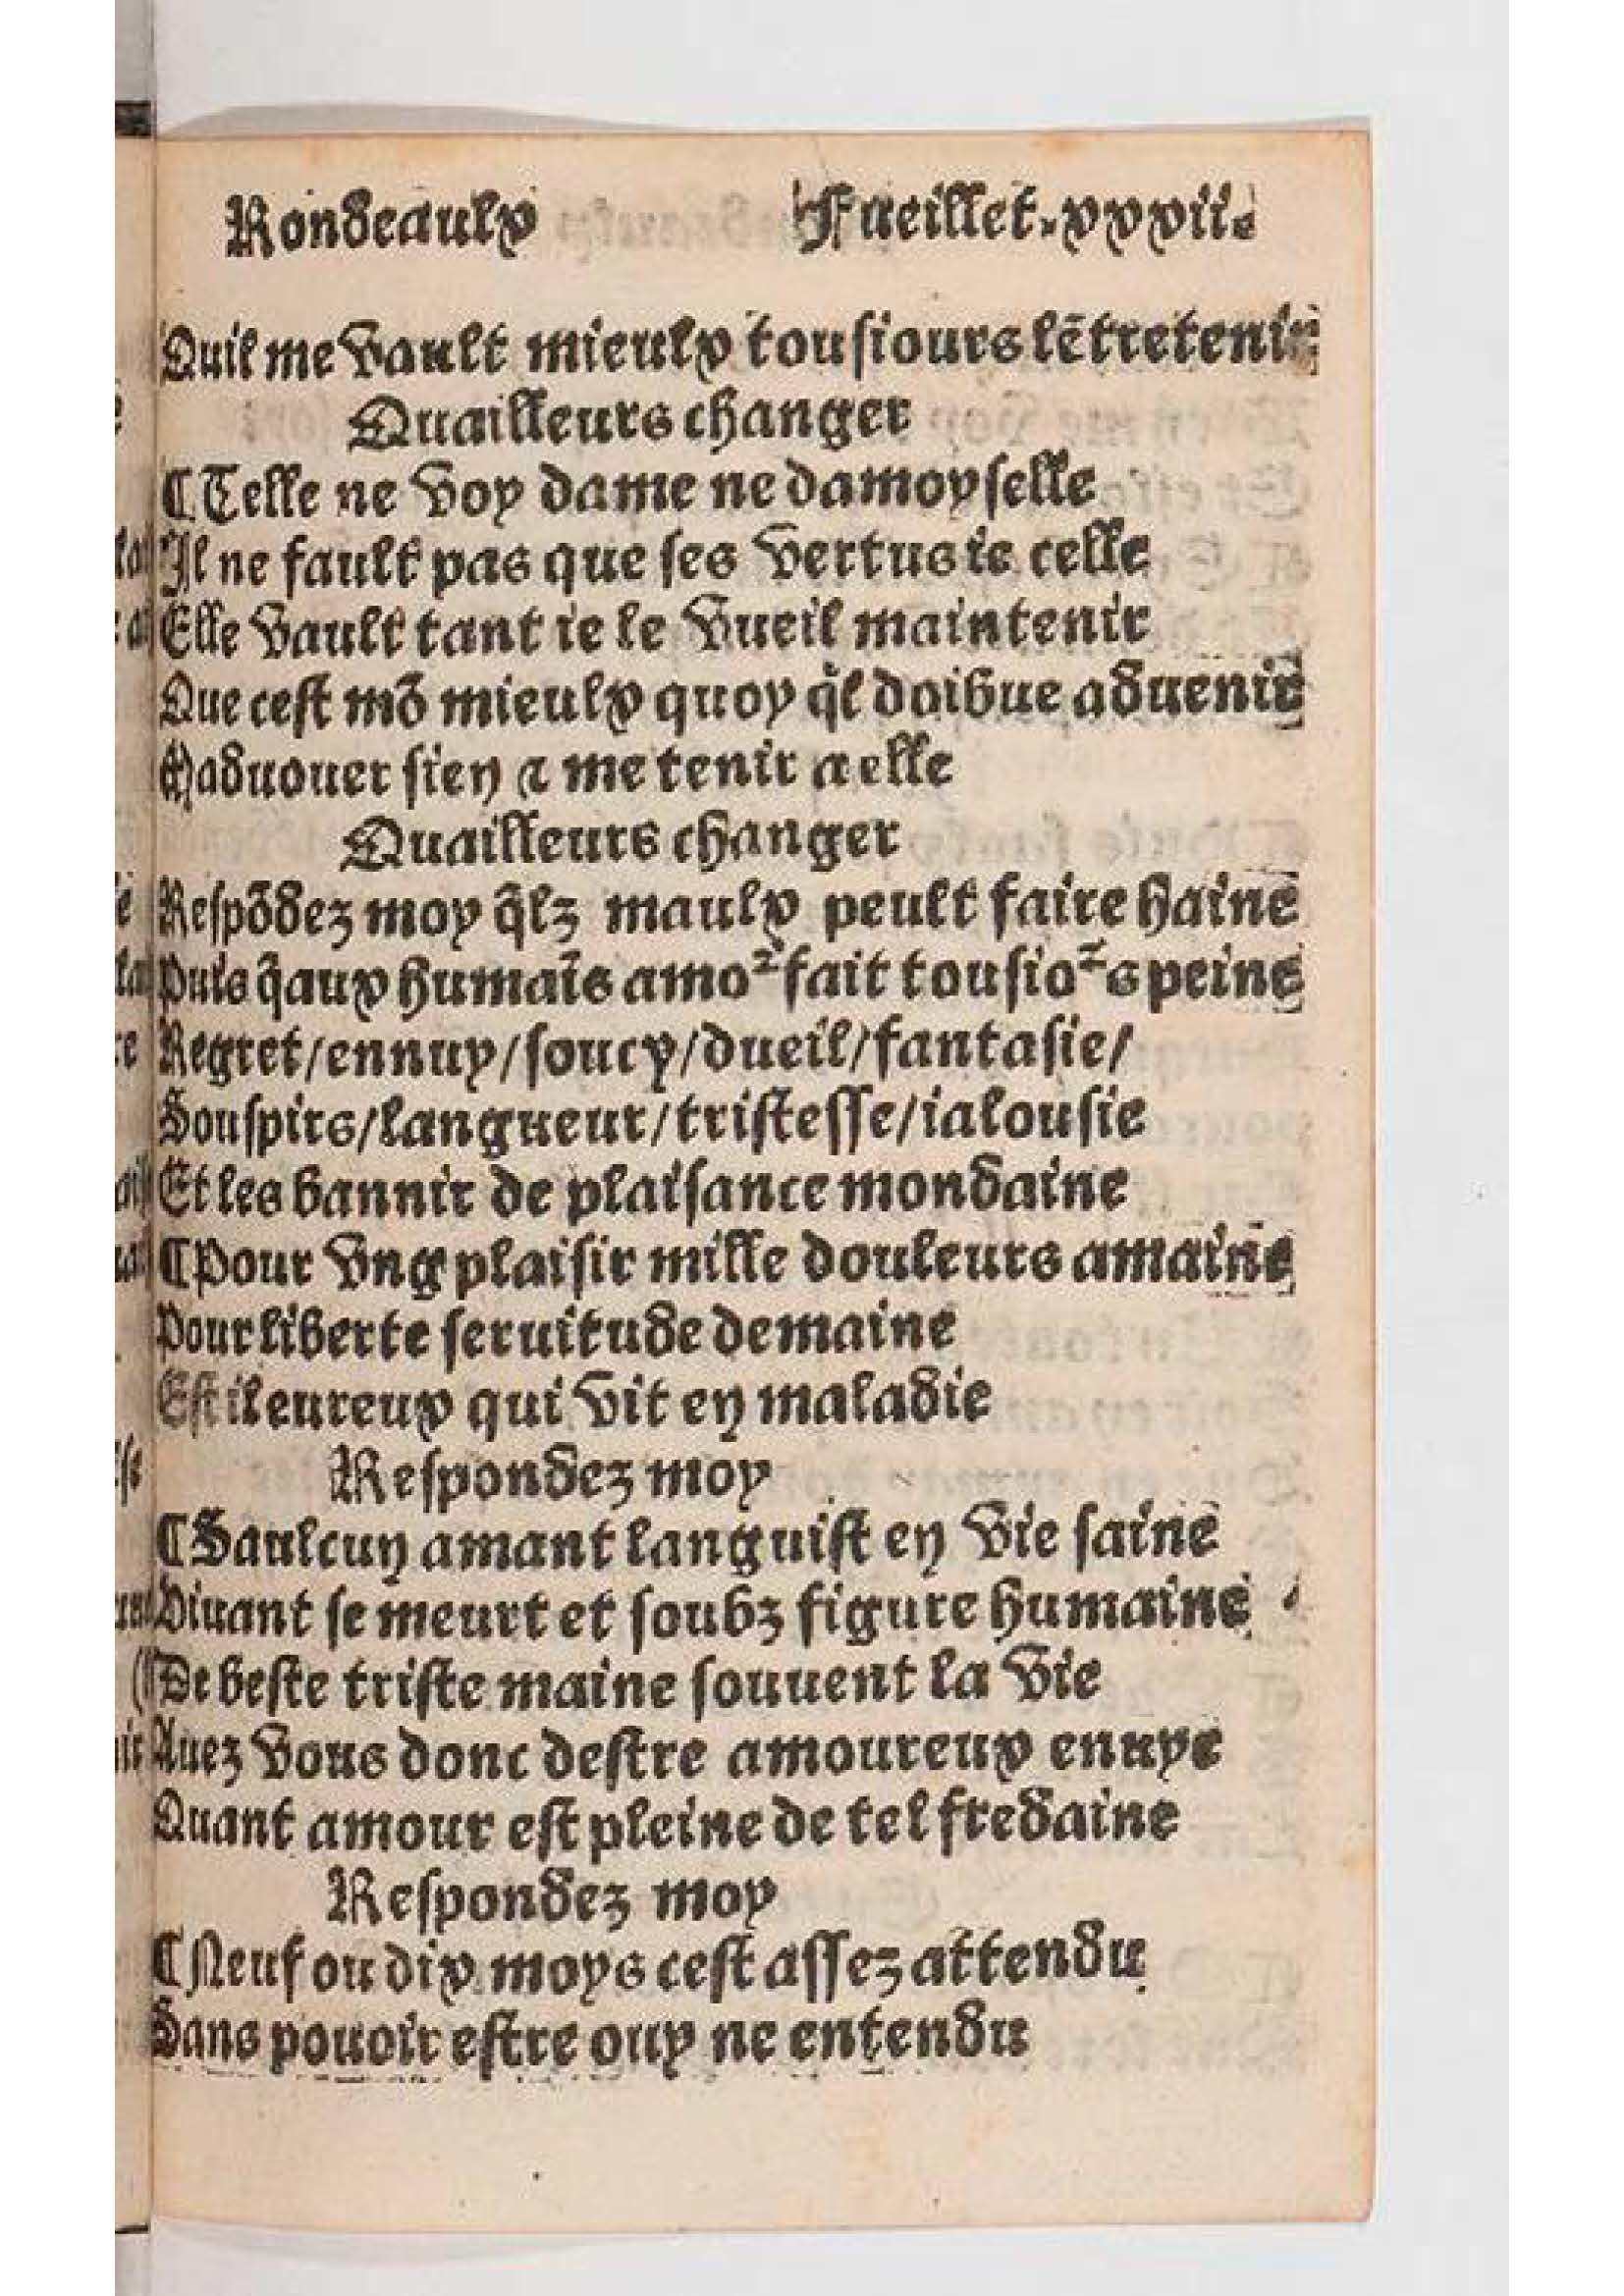 Rondeaulx Fueillet.xxxii.
Quil me vault mieulx tousiours lētretenir
Quailleurs changer
¶ Telle ne voy dame ne damoyselle
Il ne fault pas que ses vertus ie celle
Elle vault tant ie le vueil maintenir
Que cest mō mieulx quoy q̄l doibue aduenir
Maduouer sien ⁊ me tenir a elle
Quailleurs changer
Respōdez moy q̄lz maulx peult faire haine
Puis q̄aux humaīs amoꝛ fait tousioꝛs peine
Regret/ennuy/soucy/dueil/fantasie/
Souspirs/langueur/tristesse/ialousie
Et les bannir de plaisance mondaine
¶ Pour vng plaisir mille douleurs amaine
Pour liberte seruitude demaine
Est il eureux qui vit en maladie
Respondez moy
¶ Saulcun amant languist en vie saine
Viuant se meurt et soubz figure humaine
De beste triste maine souuent la vie
Auez vous donc destre amoureux enuye
Quant amour est pleine de tel fredaine
Respondez moy
¶ Neuf ou dix moys cest assez attendu
Sans pouoir estre ouy ne entendu